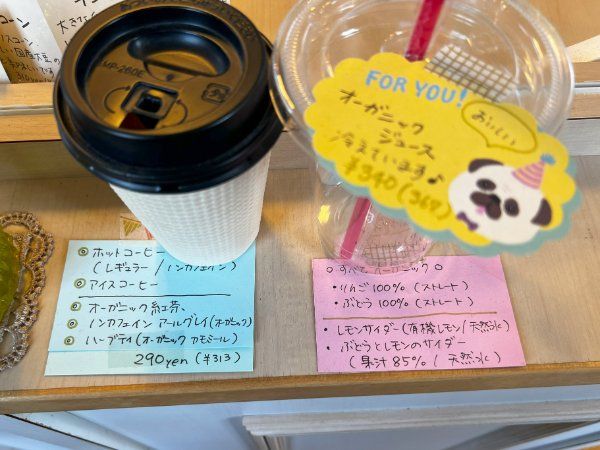 コーン
大きな
スコーン
国産大豆の
MP-280E
FOR YOU!
おいしい
オーガニック
ジュース
冷えています♪
¥340(367)
◎ ホットコーヒー
(レギュラー / ノンカフェイン)
◎ アイスコーヒー
◎ オーガニック紅茶
◎ ノンカフェイン アールグレイ(オーガニック)
◎ ハーブティ(オーガニック カモミール)
290yen (¥313)
○ すべてオーガニック ○
・りんご100% (ストレート)
・ぶどう100% (ストレート)
・レモンサイダー (有機レモン/天然水)
・ぶどうとレモンのサイダー
(果汁85% / 天然水)